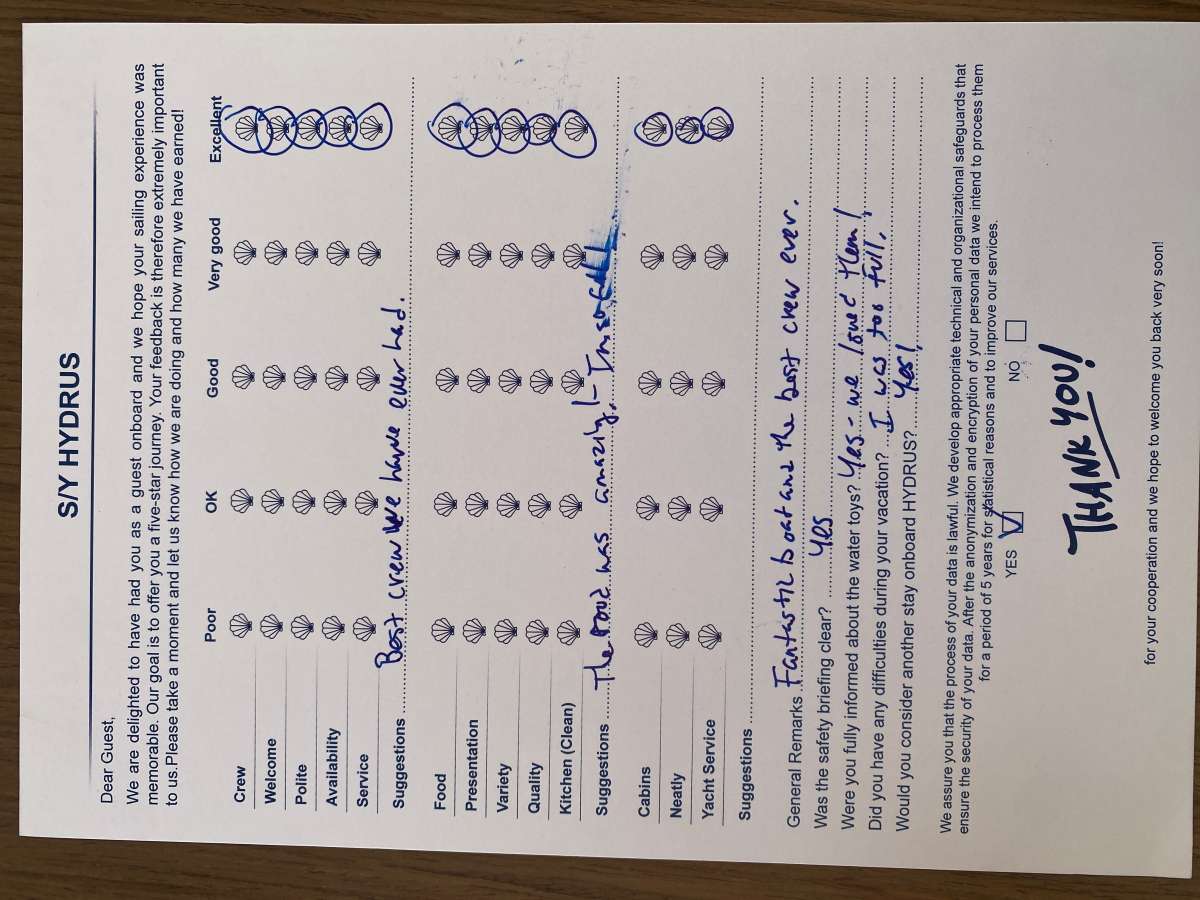 S/Y HYDRUS
Dear Guest,
We are delighted to have had you as a guest onboard and we hope your sailing experience was
memorable. Our goal is to offer you a five-star journey. Your feedback is therefore extremely important
to us.Please take a moment and let us know how we are doing and how many we have earned!
Poor OK Good Very good Excellent
Crew
Welcome
Polite
Availability
Service
Best crew we have ever had.
Suggestions
Food
Presentation
Variety
Quality
Kitchen (Clean)
Suggestions The food was amazing!-
Cabins
Neatly
Yacht Service
Suggestions
General Remarks Fantastic boat and the best crew ever.
Was the safety briefing clear? Yes
Were you fully informed about the water toys? Yes - we loved them!
Did you have any difficulties during your vacation? I was too full.
Would you consider another stay onboard HYDRUS? Yes!
We assure you that the process of your data is lawful. We develop appropriate technical and organizational safeguards that
ensure the security of your data. After the anonymization and encryption of your personal data we intend to process them
for a period of 5 years for statistical reasons and to improve our services.
YES NO
THANK YOU!
for your cooperation and we hope to welcome you back very soon!